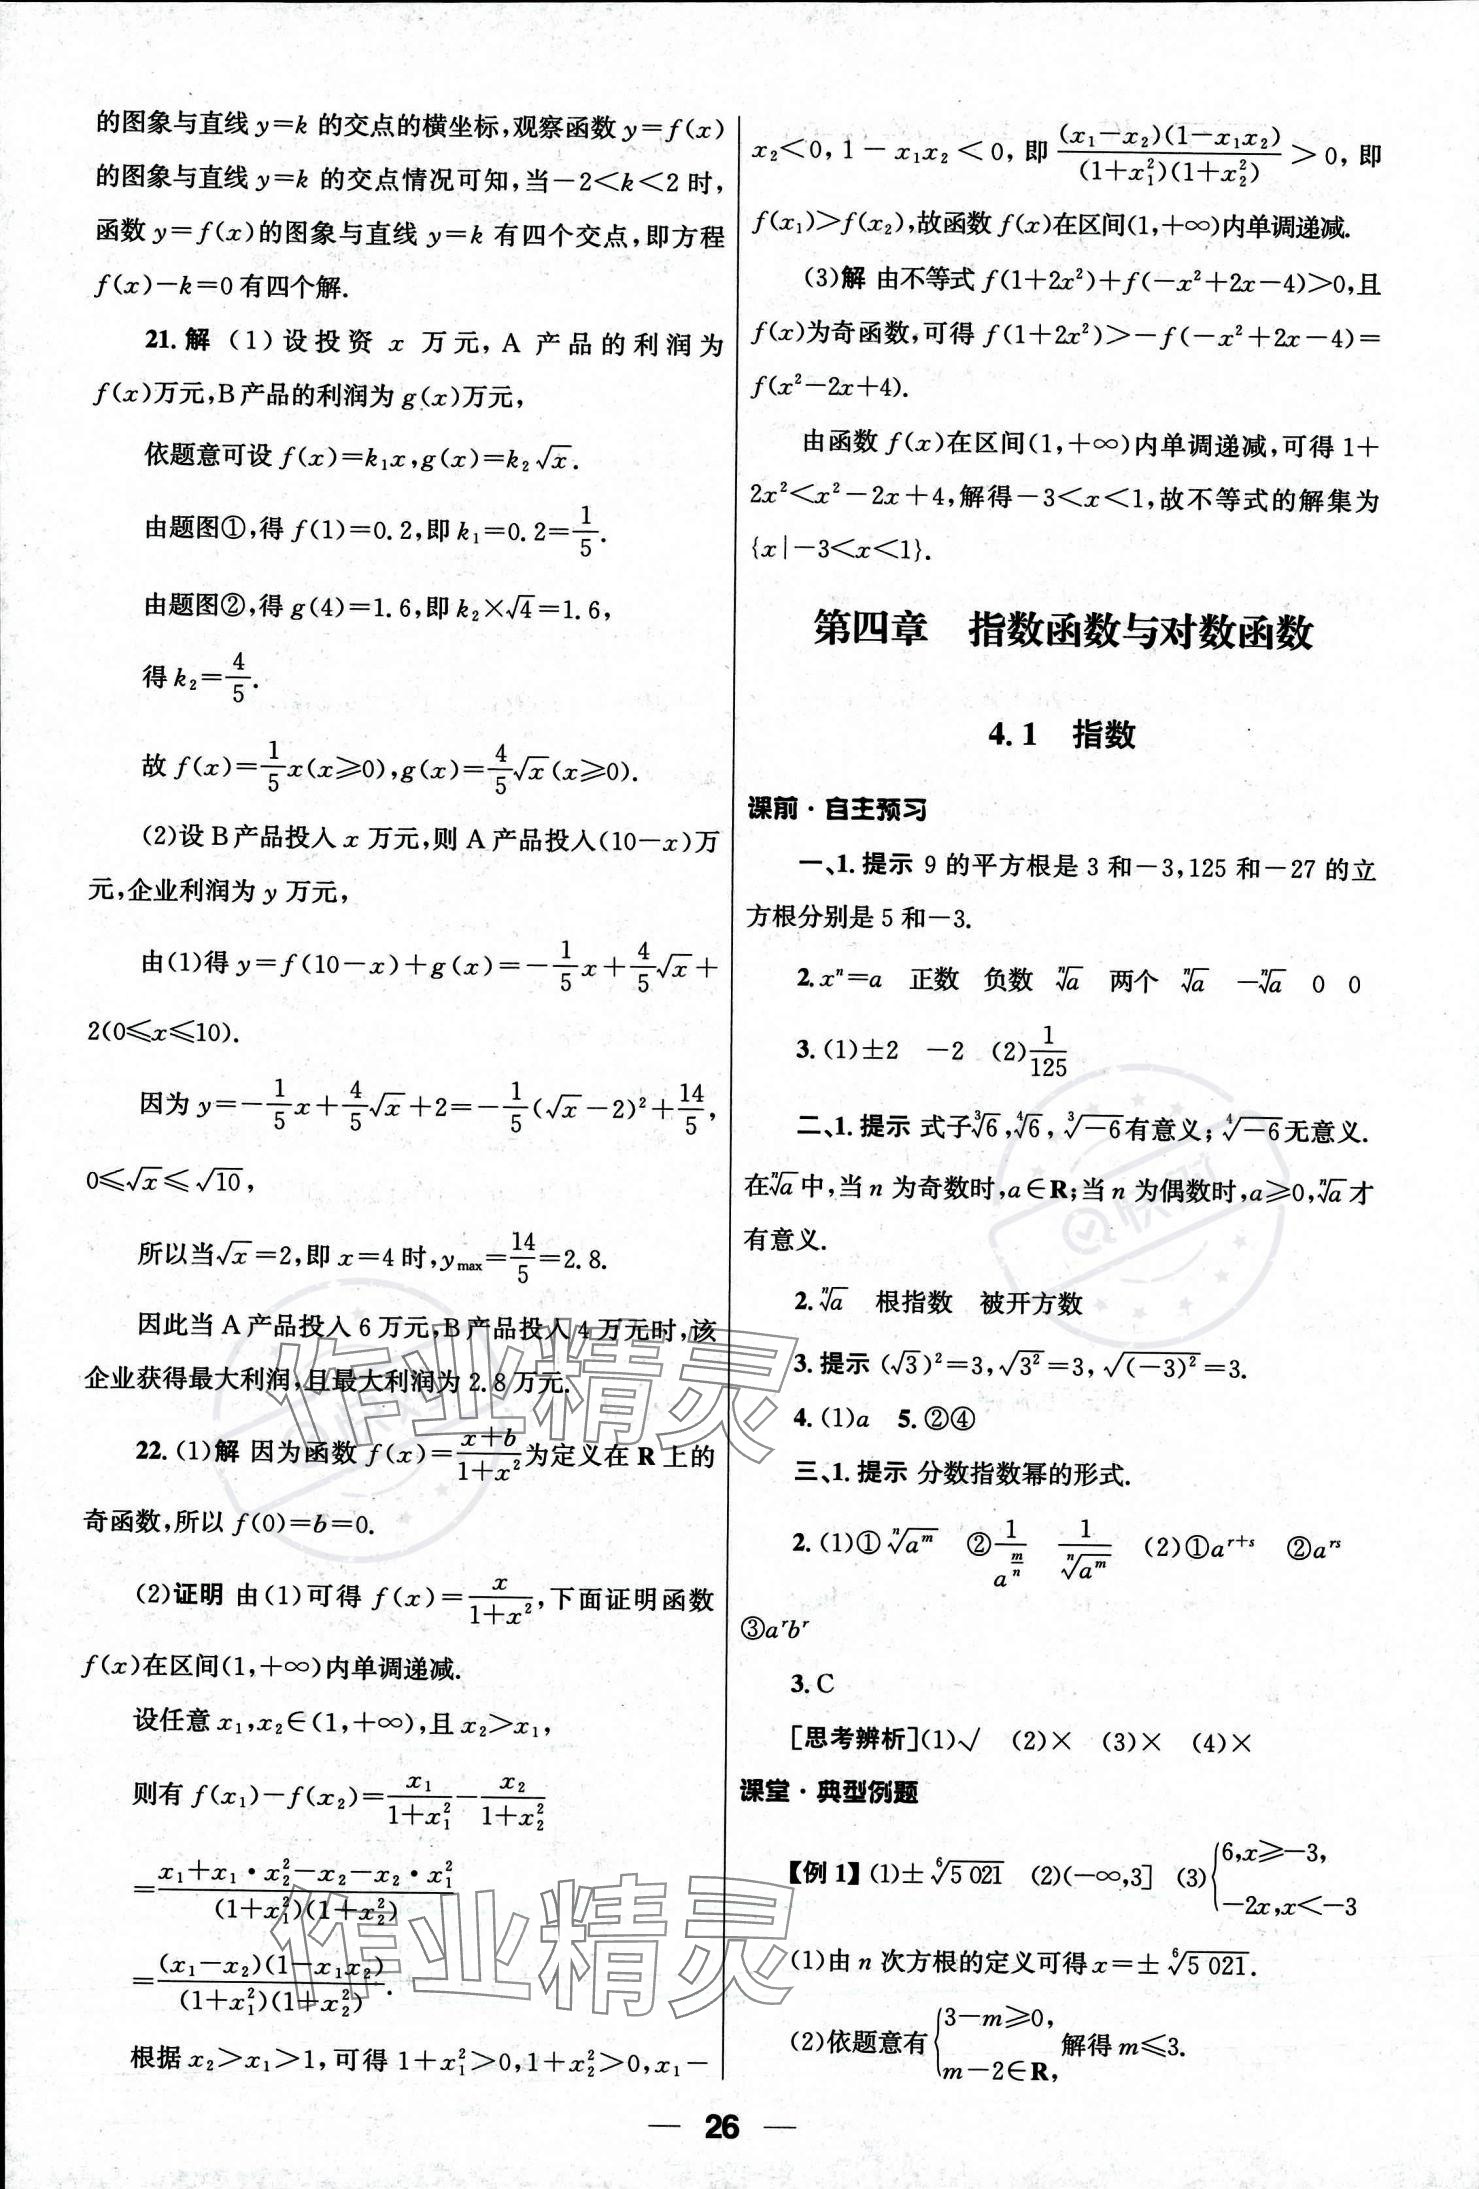 的图象与直线 y=k 的交点的横坐标,观察函数 y=f(x)
的图象与直线 y=k 的交点情况可知,当-2<k<2 时,
函数 y=f(x)的图象与直线 y=k 有四个交点,即方程
f(x)-k=0 有四个解.
21. 解 (1)设投资 x 万元, A 产品的利润为
f(x)万元,B 产品的利润为 g(x)万元,
依题意可设 f(x)=k₁x,g(x)=k₂√x.
由题图①,得 f(1)=0.2,即 k₁=0.2=1/5.
由题图②,得 g(4)=1.6,即 k₂×√4=1.6,
得 k₂=4/5.
故 f(x)=1/5 x(x≥0),g(x)=4/5 √x(x≥0).
(2)设 B 产品投入 x 万元,则 A 产品投入(10-x)万
元,企业利润为 y 万元,
由(1)得 y=f(10-x)+g(x)=-1/5 x+4/5 √x+
2(0≤x≤10).
因为 y=-1/5 x+4/5 √x+2=-1/5(√x-2)²+14/5,
0≤√x≤√10,
所以当√x=2,即 x=4 时,y_max=14/5=2.8.
因此当 A 产品投入 6 万元,B 产品投入 4 万元时,该
企业获得最大利润,且最大利润为 2.8 万元.
22. (1)解 因为函数 f(x)=(x+b)/(1+x²)为定义在 R 上的
奇函数,所以 f(0)=b=0.
(2)证明 由(1)可得 f(x)=x/(1+x²),下面证明函数
f(x)在区间(1,+∞)内单调递减.
设任意 x₁,x₂∈(1,+∞),且 x₂>x₁,
则有 f(x₁)-f(x₂)=x₁/(1+x₁²)-x₂/(1+x₂²)
=(x₁+x₁·x₂²-x₂-x₂·x₁²)/((1+x₁²)(1+x₂²))
=(x₁-x₂)(1-x₁x₂)/((1+x₁²)(1+x₂²)).
根据 x₂>x₁>1,可得 1+x₁²>0,1+x₂²>0,x₁-
x₂<0,1-x₁x₂<0,即 (x₁-x₂)(1-x₁x₂)/((1+x₁²)(1+x₂²))>0,即
f(x₁)>f(x₂),故函数 f(x)在区间(1,+∞)内单调递减.
(3)解 由不等式 f(1+2x²)+f(-x²+2x-4)>0,且
f(x)为奇函数,可得 f(1+2x²)>-f(-x²+2x-4)=
f(x²-2x+4).
由函数 f(x)在区间(1,+∞)内单调递减,可得 1+
2x²<x²-2x+4,解得-3<x<1,故不等式的解集为
{x|-3<x<1}.
第四章 指数函数与对数函数
4.1 指数
课前·自主预习
一、1. 提示 9 的平方根是 3 和-3,125 和-27 的立
方根分别是 5 和-3.
2. xⁿ=a 正数 负数 ⁿ√a 两个 ⁿ√a -ⁿ√a 0 0
3. (1)±2 -2 (2)1/125
二、1. 提示 式子³√6,⁴√6,³√-6有意义;⁴√-6无意义.
在ⁿ√a中,当 n 为奇数时,a∈R;当 n 为偶数时,a≥0,ⁿ√a才
有意义.
2. ⁿ√a 根指数 被开方数
3. 提示 (√3)²=3,√3²=3,√(-3)²=3.
4. (1)a 5. ②④
三、1. 提示 分数指数幂的形式.
2. (1)①ⁿ√aᵐ ②1/a^(m/n) 1/ⁿ√aᵐ (2)①a^(r+s) ②a^(rs)
③aʳbʳ
3. C
[思考辨析](1)√ (2)× (3)× (4)×
课堂·典型例题
【例 1】(1)±⁶√5 021 (2)(-∞,3] (3){6,x≥-3,
-2x,x<-3
(1)由 n 次方根的定义可得 x=±⁶√5 021.
(2)依题意有{3-m≥0, m-2∈R, 解得 m≤3.
— 26 —
作业精灵
作业精灵